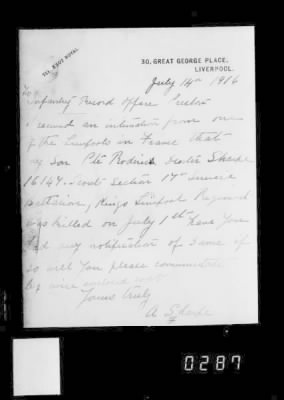 TEL. 5302 ROYAL
30, GREAT GEORGE PLACE,
LIVERPOOL.
July 14th 1916
To
Infantry Record Office Preston
I received an intimation from one
of the Liverpools in France that
my son Pte Rodrick Sharpe
16147. Scout Section 17th Service
Battalion, Kings Liverpool Regiment
was killed on July 1st have you
had any notification of same if
so will you please communicate
by wire enclosed
Yours truly
A Sharpe
0287